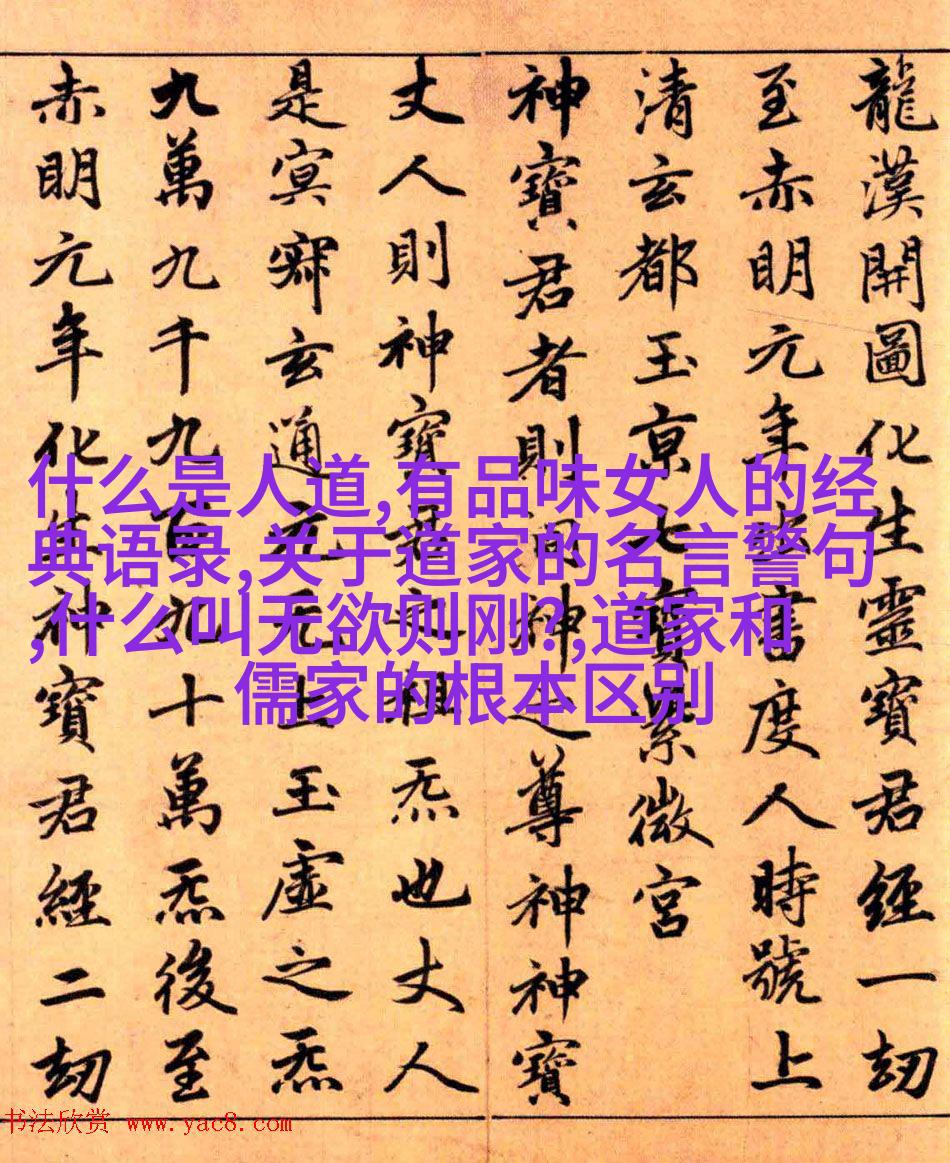 龍漢開圖化生靈寶君經一劫
至赤明元年書度人時號上
清玄都玉京七寶紫微宮
神寶君者則洞神之尊神神寶
丈人則神寶君祖炁也丈人
是冥寂玄通元无上玉虛之炁
九萬九千九百九十萬炁後至
赤明元年化生神寶君經二劫
什么是人道,有品味女人的经
典语录,关于道家的名言警句
,什么叫无欲则刚?,道家和
儒家的根本区别
书法欣赏 www.yac8.com